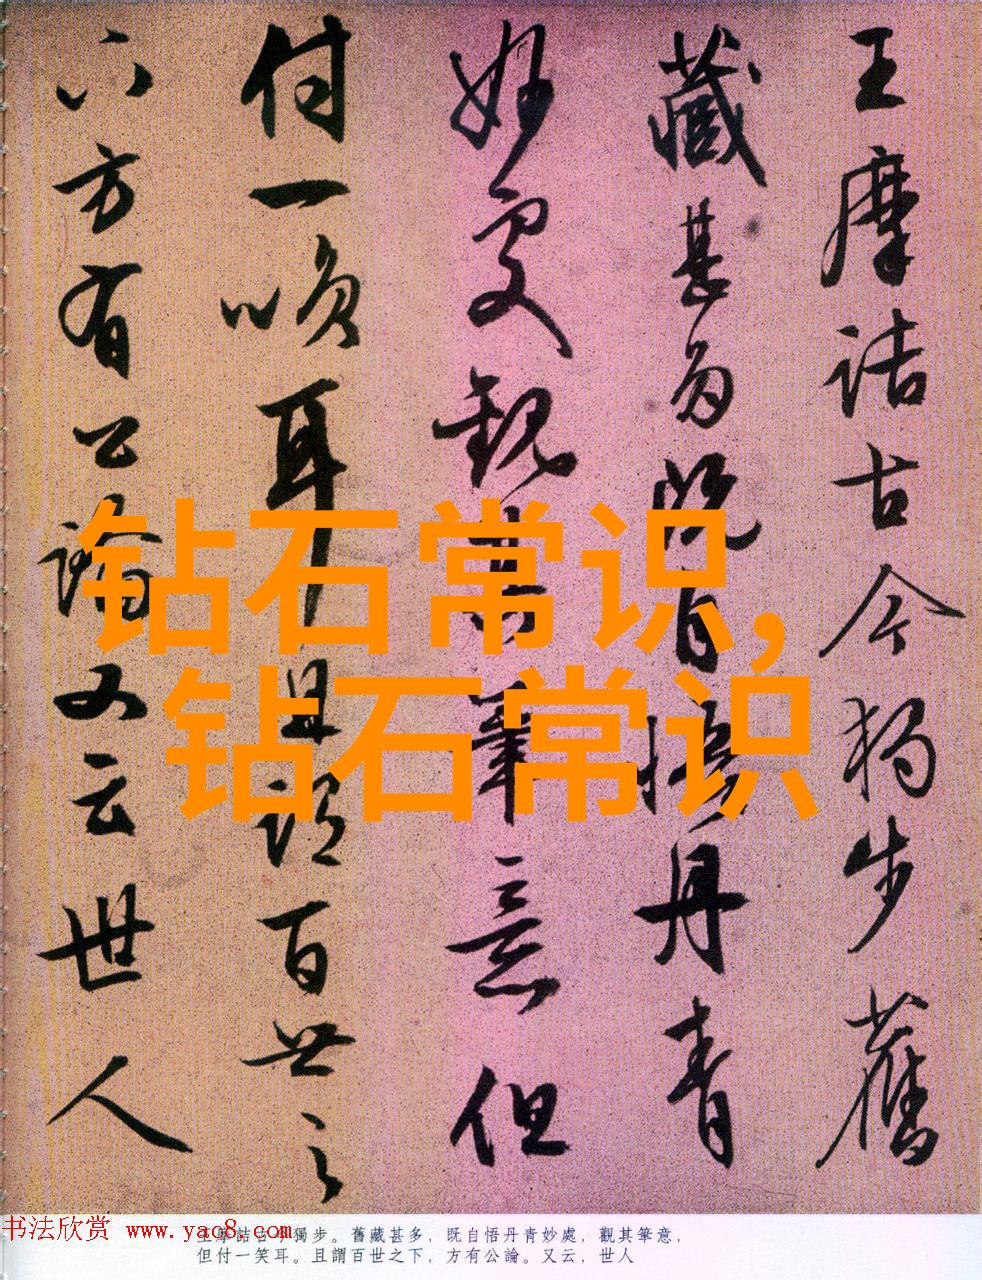 王摩詰古今獨步舊
藏甚多既自悟丹青
妙處觀其筆意但
付一笑耳且謂百世之
下方有公論又云世人
钻石常识,
钻石常识
书法欣赏 www.yac8.com
王摩詰古今獨步。舊藏甚多，既自悟丹青妙處，觀其筆意，
但付一笑耳。且謂百世之下，方有公論。又云，世人